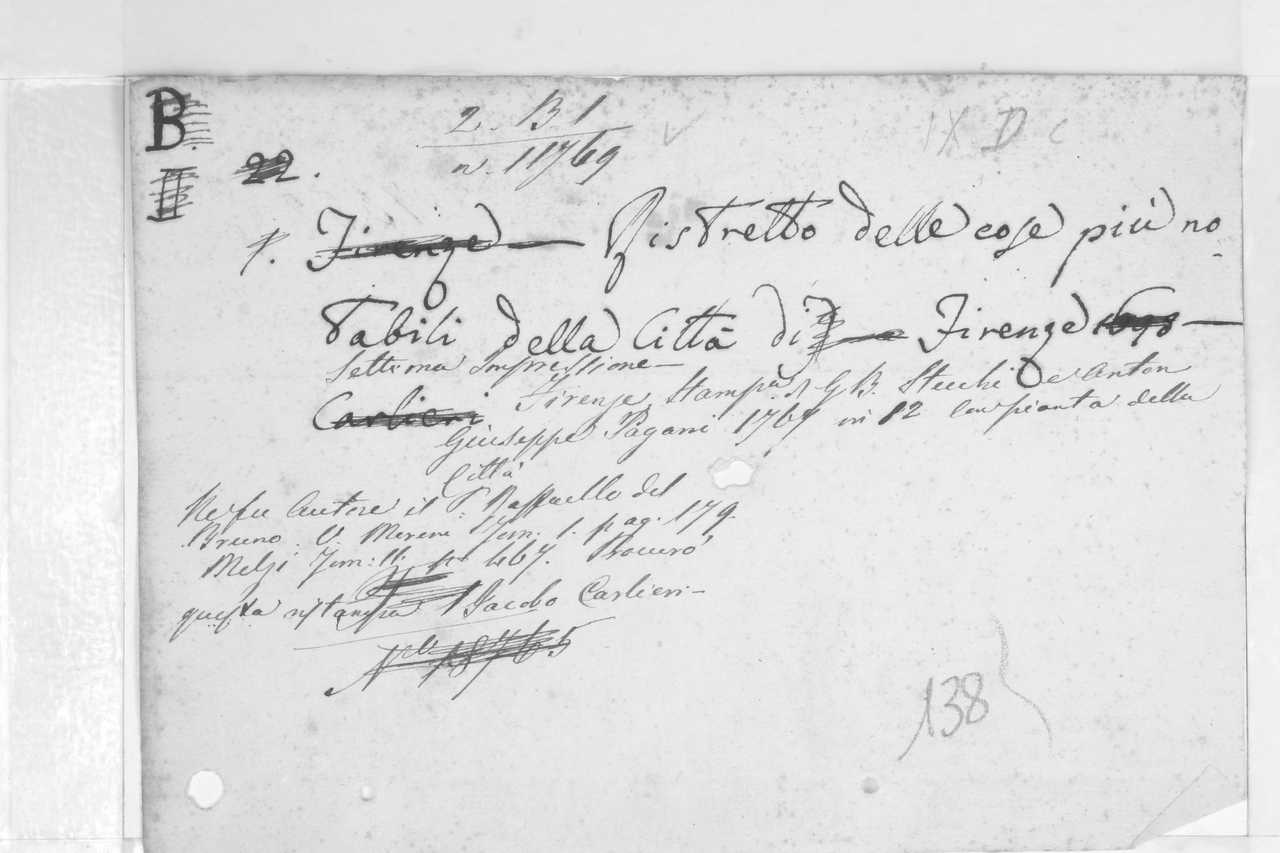 B.
II
2. B. 1
n. 11769
IX D c
22.
Firenze — Ristretto delle cose più no-
tabili della Città di — Firenze 1698 —
Settima Impressione —
Carlieri Firenze, Stamp. G. B. Stecchi e Anton
Giuseppe Pagani 1767 in 12 con pianta della
Città
Ne fu Autore il P. Raffaello del
Bruno. V. Moreni Tom. 1. pag. 179.
Melzi Tom: II. p. 467. Procurò
questa ristampa Jacobo Carlieri —
N.° 18765
138